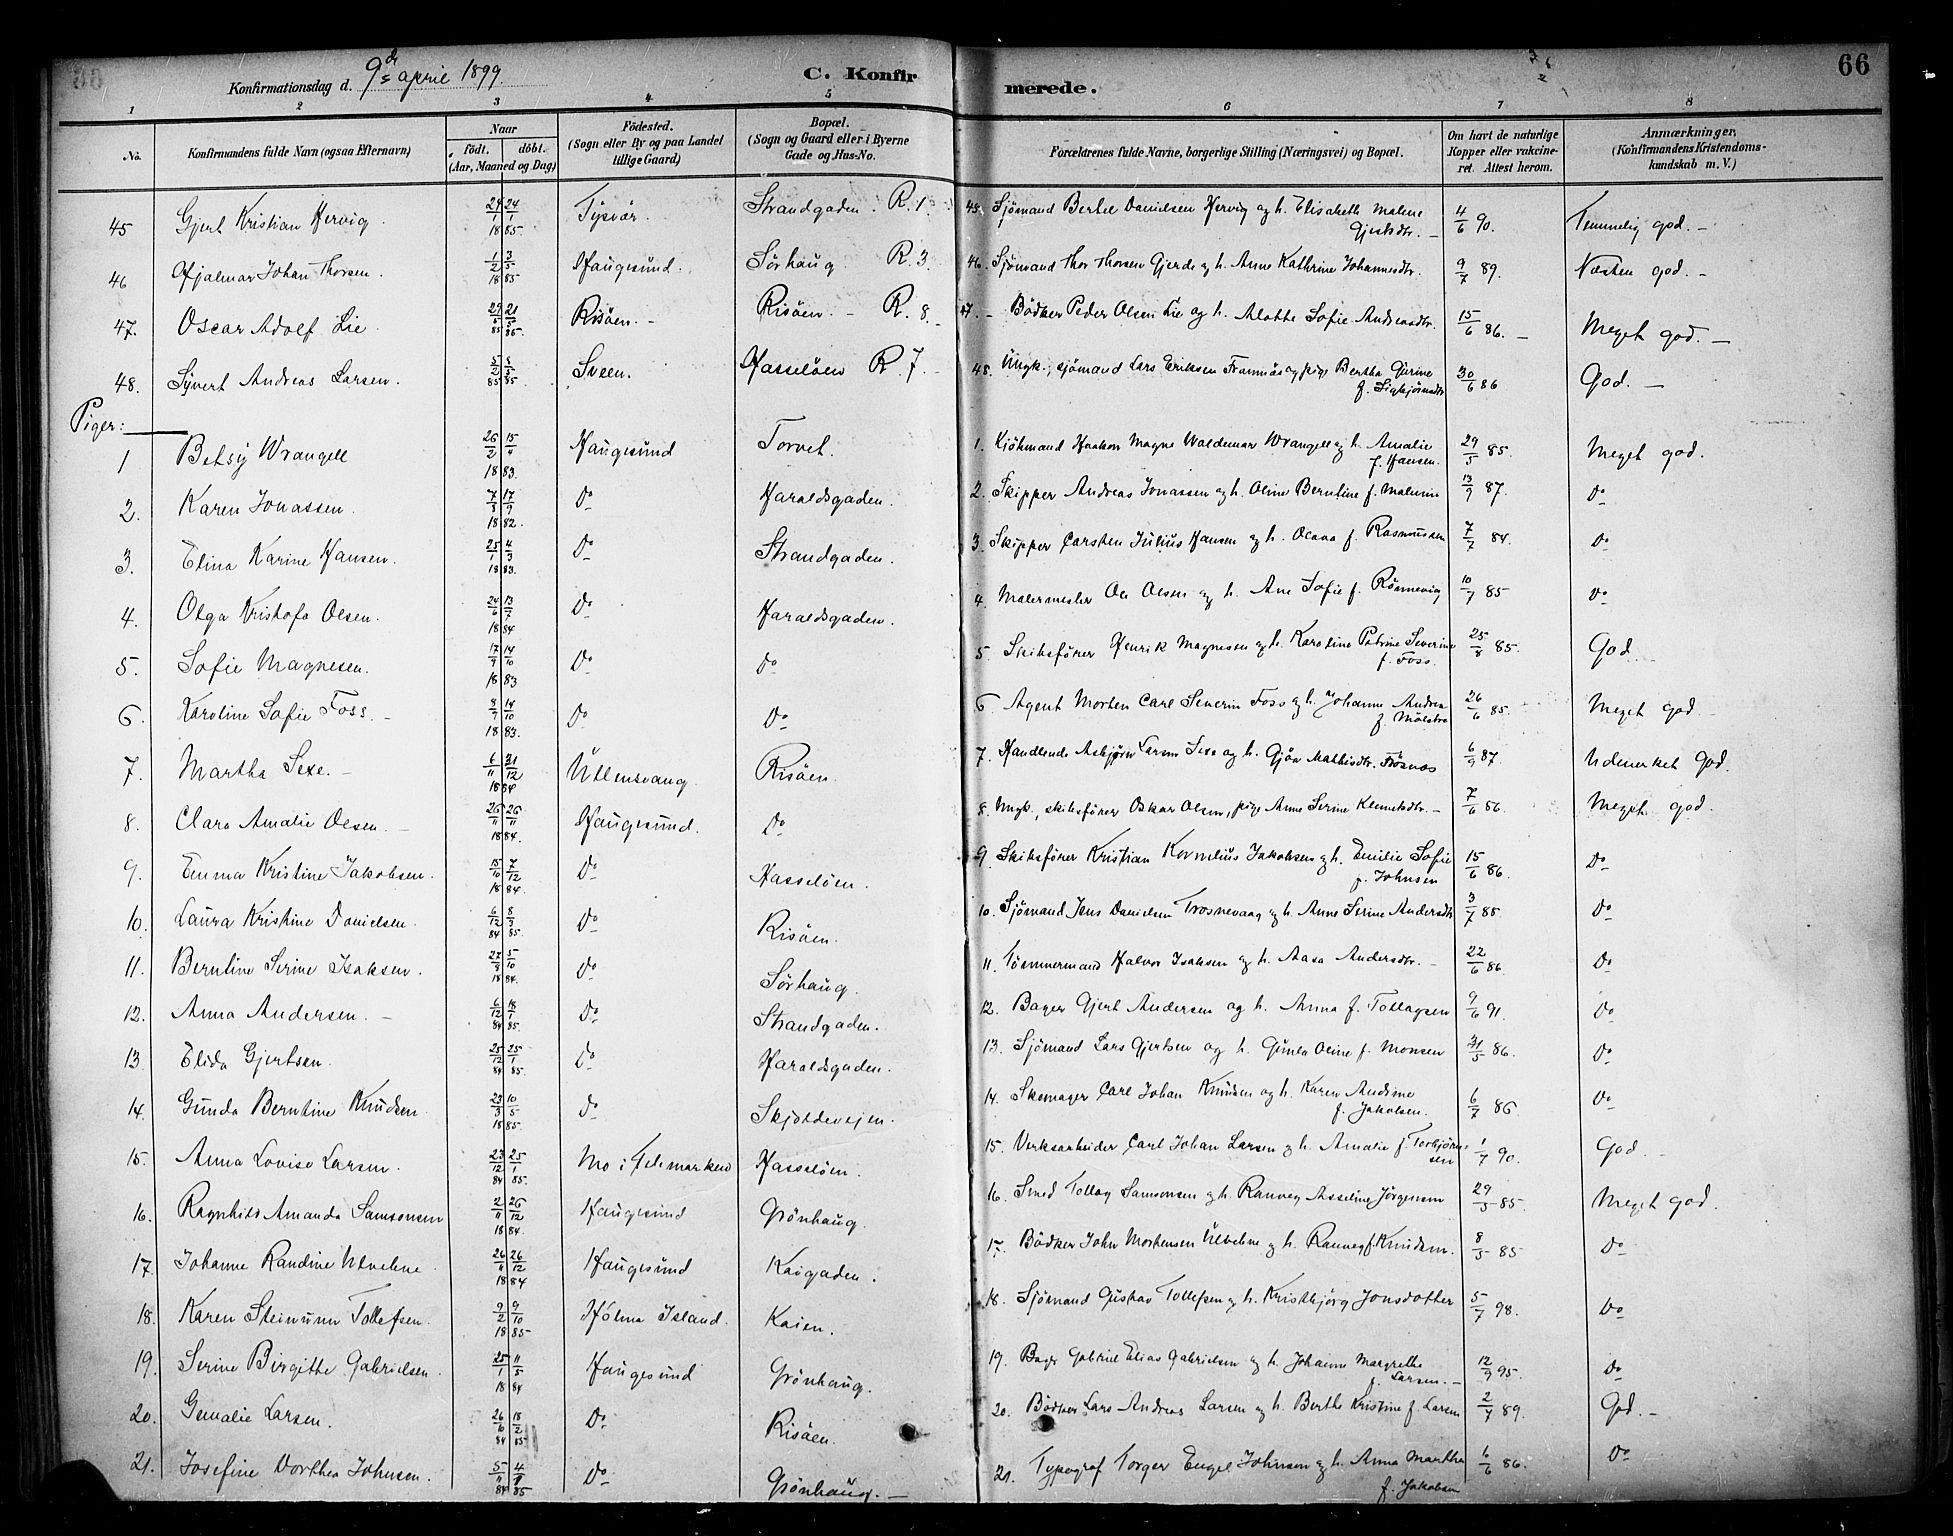 Konfirmationsdag d. 9de april 1899.
C. Konfirmerede.
66
1 2 3 4 5 6 7 8
No. Konfirmandens fulde Navn (ogsaa Efternavn) Naar födt. döbt. (Aar, Maaned og Dag) Födested. (Sogn eller By og paa Landet tillige Gaard) Bopæl. (Sogn og Gaard eller i Byerne Gade og Hus-No. Forældrenes fulde Navne, borgerlige Stilling (Næringsvei) og Bopæl. Om havt de naturlige Kopper eller vakcineret. Attest herom. Anmærkninger. (Konfirmandens Kristendomskundskab m. V.)
45 Gjert Kristian Hervig. 24/1 24/1 1885. Tysvär. Strandgaden. R. 1. 45. Sjömand Bertel Danielsen Hervig og h. Elisabeth Malene Gjertsdtr. 4/6 90. Temmelig god.
46 Hjalmar Johan Thorsen. 1/2 3/5 1885 Haugesund. Sörhaug. R. 3. 46. Sjömand Thor Thorsen Gjerde og h. Anne Kathrine Johannesdtr. 9/7 89. Næsten god.
47. Oscar Adolf Lie. 85 85. Risöen. Risöen. R. 8. 47. Bödker Peder Olsen Lie og h. Alotte Sofie Andreasdtr. 15/6 86. Meget god.
48. Syvert Andreas Larsen. 5/2 85 85 Sveen. Hasselöen R. 7. 48. Ungk., sjömand Lars Eriksen og pige Bertha Gurine f. Sigbjörnsdtr 30/6 86 God.
Piger:
1 Betsy Wrangell 26/2 15/4 1883. Haugesund Torvet. 1. Kjöbmand Haakon Magne Waldemar Wrangell og h. Amalie f. Hansen. 29/5 85. Meget god.
2. Karen Jonassen. 7/8 17/9 1882. Do Haraldsgaden. 2. Skipper Andreas Jonassen og h. Oline Berntine f. 13/9 87. Do
3. Elina Karine Hansen. 25/1 4/3 1883. Do Strandgaden. 3. Skipper Carsten Julius Hansen og h. f. Rasmussen 7/7 84. Do
4. Olga Kristofa Olsen. 24/6 13/7 1884 Do Haraldsgaden. 4. Malermester Ole Olsen og h. Ane Sofie f. Rönnevig 10/7 85 Do
5. Sofie Magnesen. 17/9 14/10 1883 Do Do 5. Skibsförer Henrik Magnesen og h. Karoline Petrine Severine f. Foss. 25/8 85. God.
6. Karoline Sofie Foss. 14/10 1883. Do Do 6. Agent Morten Carl Severin Foss og h. Johanne Andrea f. 26/6 85. Meget god.
7. Martha Sexe. 6/11 21/12 1884 Ullensvang. Risöen. 7. Handlende Asbjörn Larsen Sexe og h. Gjöa Mathisdtr. 6/9 87 Udmerket God.
8. Clara Amalie Olsen. 26/11 26/11 1884. Haugesund. Do 8. Ungk., skibsförer Oskar Olsen, pige Anne Serine 7/6 86. Meget god.
9. Emma Kristine Jakobsen. 15/10 7/12 1884 Do Hasselöen. 9. Skibsförer Kristian Kornelius Jakobsen og h. Emilie Sofie f. Johnsen 15/6 86. Do
10. Laura Kristine Danielsen. 6/12 8/3 84 85. Do Risöen. 10. Sjömand Jens Danielsen Trosnevaag og h. Anne Serine Andersdtr 3/7 85. Do
11. Berntine Serine Isaksen. 5/10 1884. Do Sörhaug. 11. Tömmermand Halvor Isaksen og h. Aasa Andersdtr. 22/6 86. Do
12. Anna Andersen. 6/12 18/1 84 85. Do Strandgaden. 12. Bager Gjert Andersen og h. Anna f. Tollagsen 9/6 91. Do
13. Elida Gjertsen. 25/12 25/1 84 85. Do Haraldsgaden. 13. Sjömand Lars Gjertsen og h. Gunla Oline f. Monsen 31/5 86. Do
14. Gunda Berntine Knudsen. 23/3 10/5 1885. Do Skjoldevejen. 14. Skomager Carl Johan Knudsen og h. Karen Andrine f. Jakobsen. 6/7 86 Do
15. Anna Lovise Larsen. 23/12 25/1 84 85. Mo i Telemarken Hasselöen. 15. Verksarbeider Carl Johan Larsen og h. Amalie f. Torbjörnsen 1/7 90. God.
16. Ragnhild Amanda Samsonsen 2/11 26/12 1884. Haugesund Grönhaug. 16. Smed Tollag Samsonsen og h. Ranveg Asseline Jörgensen 29/5 85. Meget god.
17. Johanne Randine Ulvebne. 26/11 26/12 1884 Haugesund Kaigaden. 17. Bödker John Mortensen Ulvebne og h. Ranveg f. Knudsen. 8/5 85 Do
18. Karen Steinunn Tollefsen. 9/2 9/10 1885 Hólma Island. Kaien. 18. Sjömand Gustav Tollefsen og h. Kristbjörg Jonsdotter 5/7 98. Do
19. Serine Birgitte Gabrielsen. 25/1 11/5 1884 Haugesund Grönhaug. 19. Bager Gabriel Elias Gabrielsen og h. Johanne Margrethe f. Larsen. 12/9 95. Do
20. Gemalie Larsen. 26/6 18/2 84 85 Do Risöen. 20. Bödker Lars Andreas Larsen og h. Berthe Kristine f. Larsen 2/7 89. God.
21. Josefine Dorthea Johnsen. 5/11 84 85 Do Grönhaug. 21. Typograf Torger Engel Johnsen og h. Anna Martha f. Jakobsen 6/6 86. Do